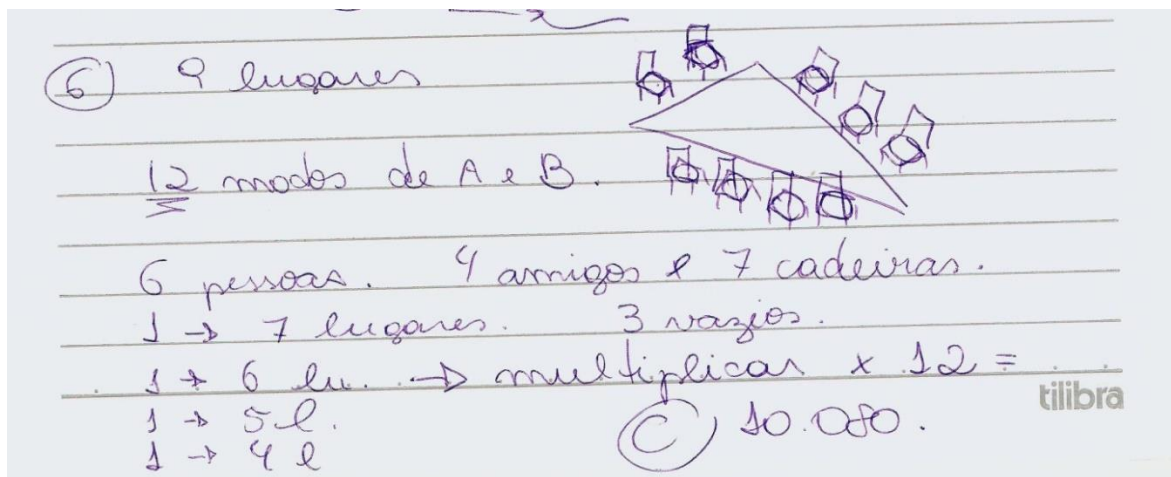 6 9 lugares
12 modos de A e B.
6 pessoas. 4 amigos e 7 cadeiras.
1 → 7 lugares. 3 vazios.
1 → 6 lu. → multiplicar x 12 =
1 → 5 l. C 10.080.
1 → 4 l
tilibra